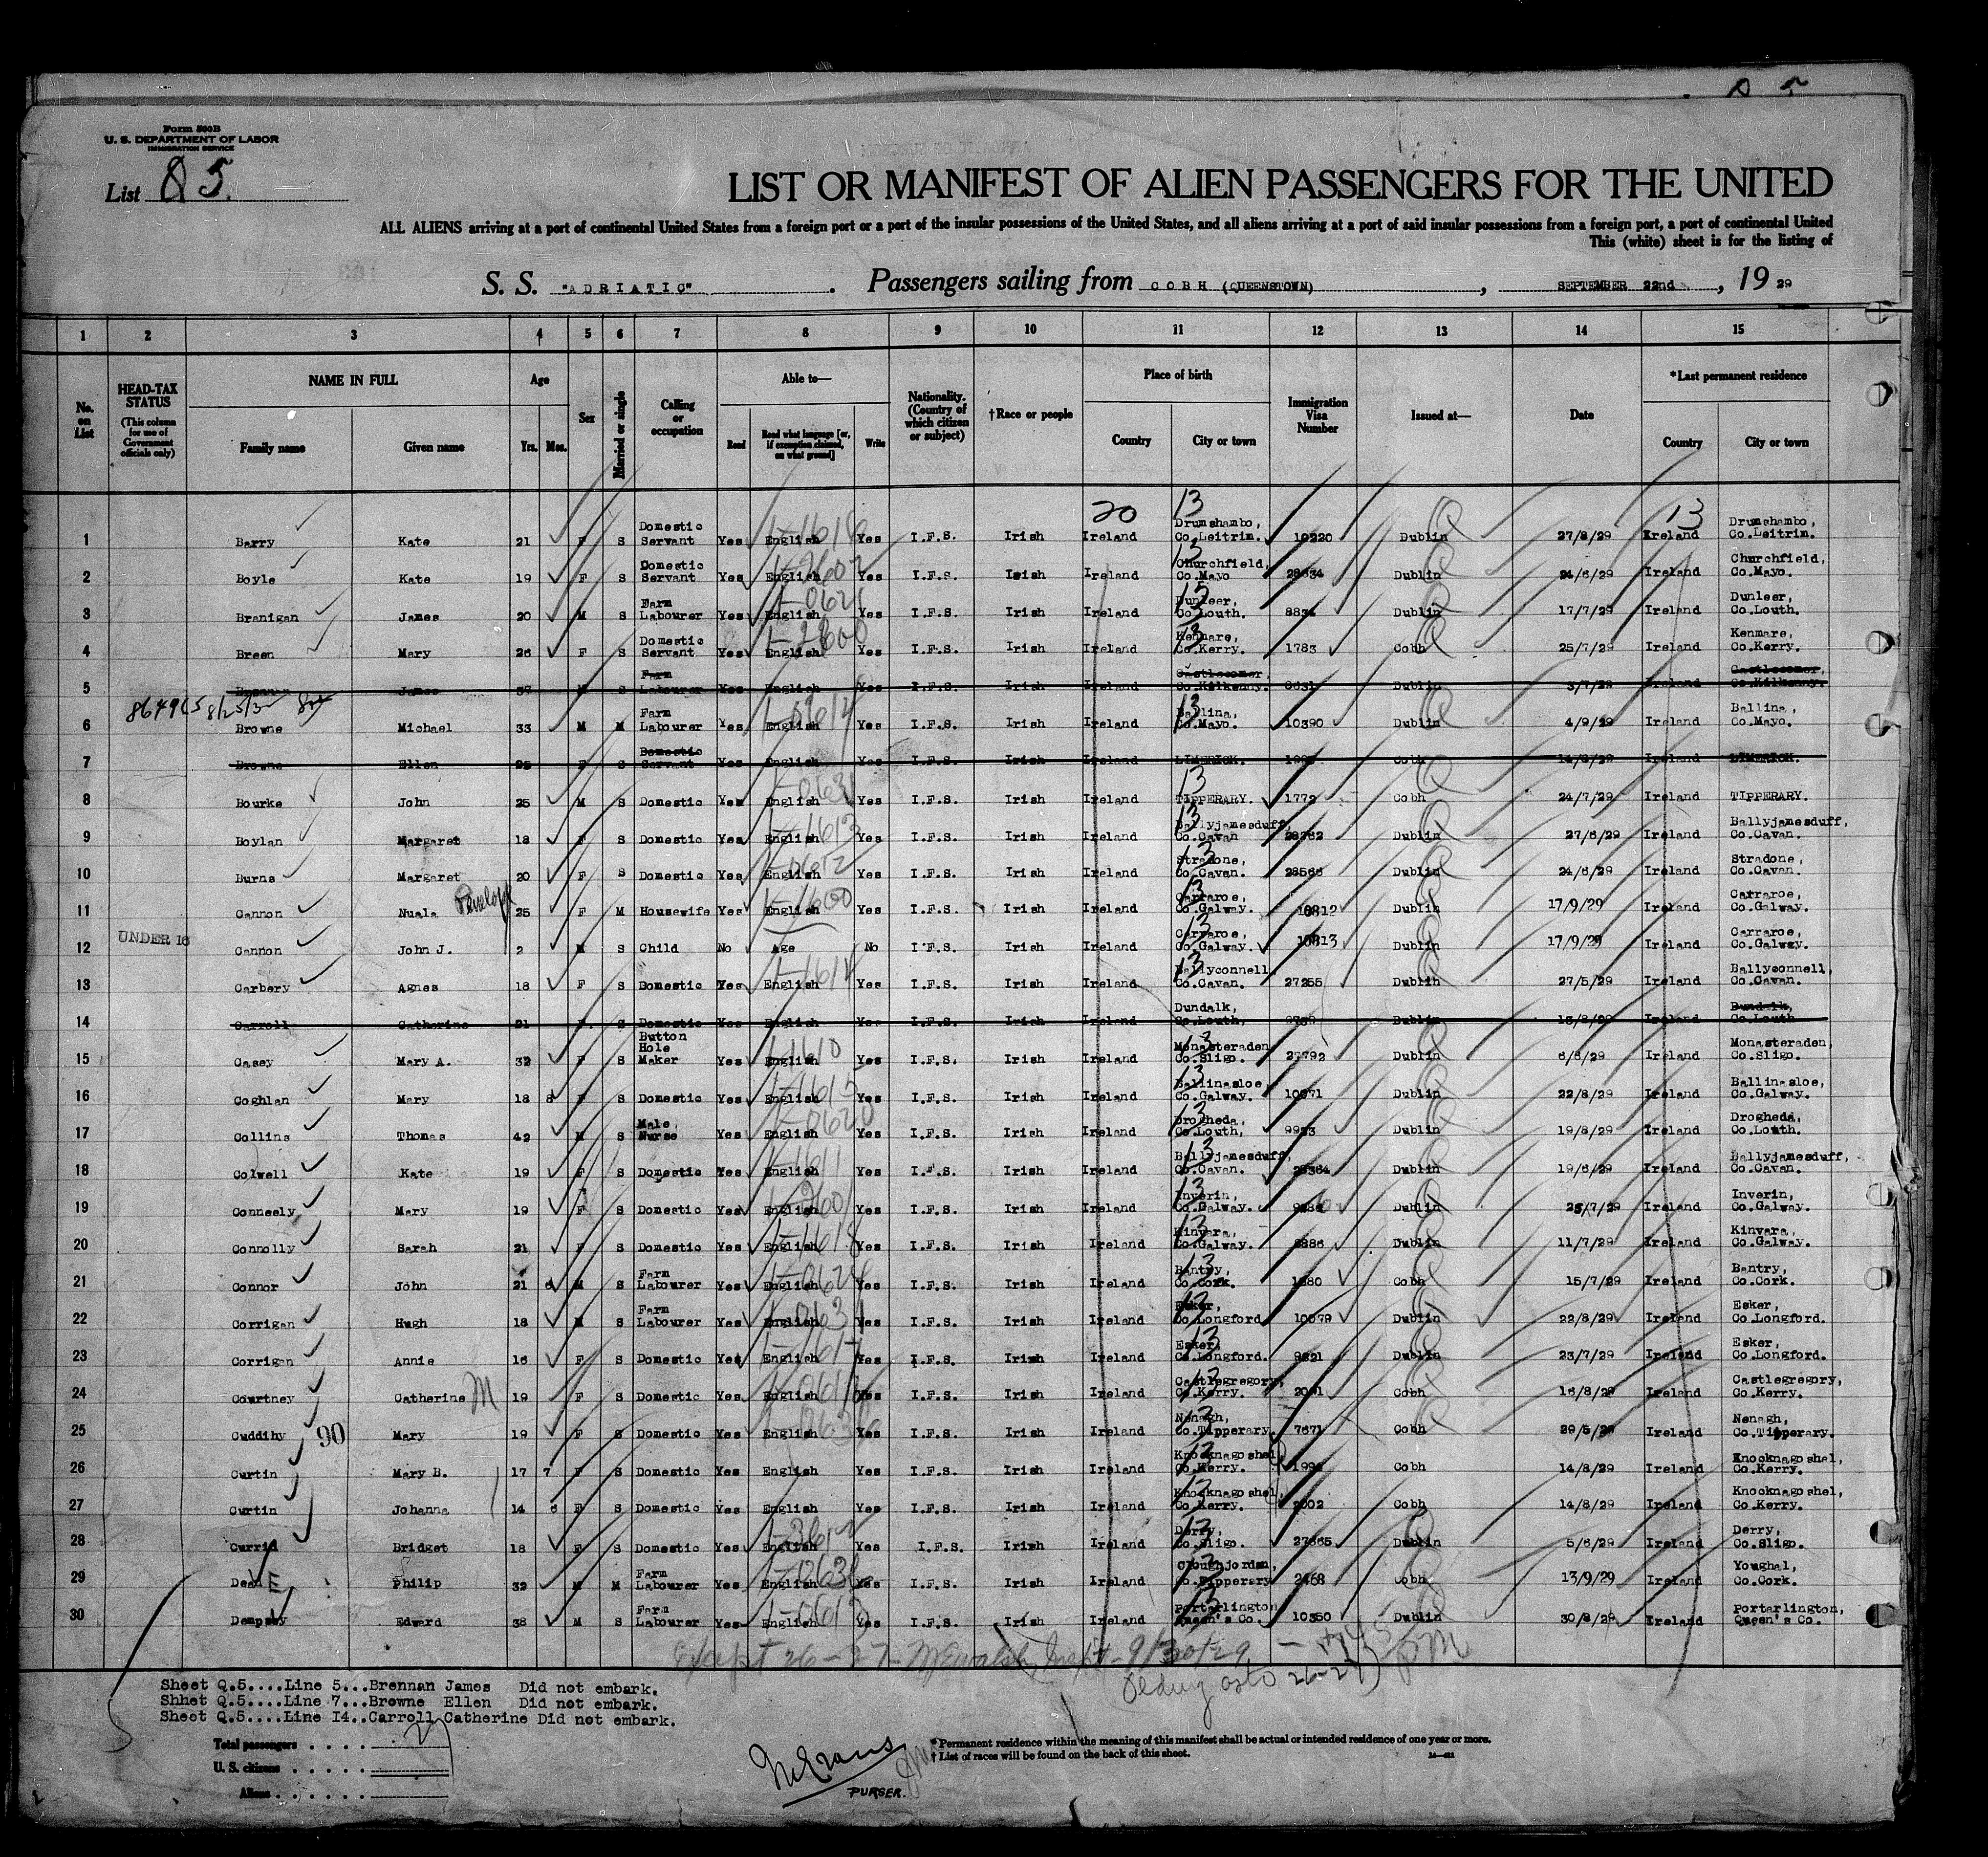 Q 5
Form 500B
U. S. DEPARTMENT OF LABOR
IMMIGRATION SERVICE
List Q 5.
LIST OR MANIFEST OF ALIEN PASSENGERS FOR THE UNITED
ALL ALIENS arriving at a port of continental United States from a foreign port or a port of the insular possessions of the United States, and all aliens arriving at a port of said insular possessions from a foreign port, a port of continental United
This (white) sheet is for the listing of
S. S. "ADRIATIC" . Passengers sailing from COBH (QUEENSTOWN) , SEPTEMBER 22nd , 19 29
1 2 3 4 5 6 7 8 9 10 11 12 13 14 15
No. on List
HEAD-TAX STATUS (This column for use of Government officials only)
NAME IN FULL Family name Given name
Age Yrs. Mos.
Sex
Married or single
Calling or occupation
Able to— Read Read what language [or, if exemption claimed, on what ground] Write
Nationality. (Country of which citizen or subject)
†Race or people
Place of birth Country City or town
Immigration Visa Number
Issued at—
Date
*Last permanent residence Country City or town
20 13 13
1 Barry Kate 21 F S Domestic Servant Yes English Yes I.F.S. Irish Ireland Drumshambo, Co.Leitrim. 10220 Dublin 27/8/29 Ireland Drumshambo, Co.Leitrim.
2 Boyle Kate 19 F S Domestic Servant Yes English Yes I.F.S. Irish Ireland Churchfield, Co.Mayo 28634 Dublin 24/6/29 Ireland Churchfield, Co.Mayo.
3 Branigan James 20 M S Farm Labourer Yes English Yes I.F.S. Irish Ireland Dunleer, Co.Louth. 8834 Dublin 17/7/29 Ireland Dunleer, Co.Louth.
4 Breen Mary 26 F S Domestic Servant Yes English Yes I.F.S. Irish Ireland Kenmare, Co.Kerry. 1783 Cobh 25/7/29 Ireland Kenmare, Co.Kerry.
5 Brennan James 37 M S Farm Labourer Yes English Yes I.F.S. Irish Ireland Castlecomer, Co.Kilkenny. Dublin 3/7/29 Ireland Castlecomer, Co.Kilkenny.
6 Browne Michael 33 M M Farm Labourer Yes English Yes I.F.S. Irish Ireland Ballina, Co.Mayo. 10390 Dublin 4/9/29 Ireland Ballina, Co.Mayo.
7 Browne Ellen 25 F S Domestic Servant Yes English Yes I.F.S. Irish Ireland LIMERICK. Cobh 14/8/29 Ireland LIMERICK.
8 Bourke John 25 M S Domestic Yes English Yes I.F.S. Irish Ireland TIPPERARY. 1772 Cobh 24/7/29 Ireland TIPPERARY.
9 Boylan Margaret 18 F S Domestic Yes English Yes I.F.S. Irish Ireland Ballyjamesduff, Co.Cavan Dublin 27/6/29 Ireland Ballyjamesduff, Co.Cavan.
10 Burns Margaret 20 F S Domestic Yes English Yes I.F.S. Irish Ireland Stradone, Co.Cavan. 28566 Dublin 24/6/29 Ireland Stradone, Co.Cavan.
11 Cannon Nuala Penelope 25 F M Housewife Yes English Yes I.F.S. Irish Ireland Carraroe, Co.Galway. 10812 Dublin 17/9/29 Ireland Carraroe, Co.Galway.
UNDER 16
12 Cannon John J. 2 M S Child No Age No I.F.S. Irish Ireland Carraroe, Co.Galway. 10813 Dublin 17/9/29 Ireland Carraroe, Co.Galway.
13 Carbery Agnes 18 F S Domestic Yes English Yes I.F.S. Irish Ireland Ballyconnell, Co.Cavan. 27255 Dublin 27/5/29 Ireland Ballyconnell, Co.Cavan.
14 Carroll Catherine 21 F S Domestic Yes English Yes I.F.S. Irish Ireland Dundalk, Co.Louth, Dublin 13/8/29 Ireland Dundalk, Co.Louth
15 Casey Mary A. 32 F S Button Hole Maker Yes English Yes I.F.S. Irish Ireland Monasteraden, Co.Sligo. 27792 Dublin 6/6/29 Ireland Monasteraden, Co.Sligo.
16 Coghlan Mary 18 8 F S Domestic Yes English Yes I.F.S. Irish Ireland Ballinasloe, Co.Galway. 10071 Dublin 22/8/29 Ireland Ballinasloe, Co.Galway.
17 Collins Thomas 42 M S Male Nurse Yes English Yes I.F.S. Irish Ireland Drogheda, Co.Louth, Dublin 19/8/29 Ireland Drogheda, Co.Louth.
18 Colwell Kate 19 F S Domestic Yes English Yes I.F.S. Irish Ireland Ballyjamesduff, Co.Cavan. 28364 Dublin 19/6/29 Ireland Ballyjamesduff, Co.Cavan.
19 Conneely Mary 19 F S Domestic Yes English Yes I.F.S. Irish Ireland Inverin, Co.Galway. Dublin 25/7/29 Ireland Inverin, Co.Galway.
20 Connolly Sarah 21 F S Domestic Yes English Yes I.F.S. Irish Ireland Kinvara, Co.Galway. Dublin 11/7/29 Ireland Kinvara, Co.Galway.
21 Connor John 21 M S Farm Labourer Yes English Yes I.F.S. Irish Ireland Bantry, Co.Cork. Cobh 15/7/29 Ireland Bantry, Co.Cork.
22 Corrigan Hugh 18 M S Farm Labourer Yes English Yes I.F.S. Irish Ireland Esker, Co.Longford. 10079 Dublin 22/8/29 Ireland Esker, Co.Longford.
23 Corrigan Annie 16 F S Domestic Yes English Yes I.F.S. Irish Ireland Esker, Co.Longford. Dublin 23/7/29 Ireland Esker, Co.Longford.
24 Courtney Catherine M 19 F S Domestic Yes English Yes I.F.S. Irish Ireland Castlegregory, Co.Kerry. Cobh 16/8/29 Ireland Castlegregory, Co.Kerry.
25 Cuddihy 90 Mary 19 F S Domestic Yes English Yes I.F.S. Irish Ireland Nenagh, Co.Tipperary. 7671 Cobh 29/5/29 Ireland Nenagh, Co.Tipperary.
26 Curtin Mary B. 17 7 F S Domestic Yes English Yes I.F.S. Irish Ireland Knocknagoshel, Co.Kerry. Cobh 14/8/29 Ireland Knocknagoshel, Co.Kerry.
27 Curtin Johanna 14 6 F S Domestic Yes English Yes I.F.S. Irish Ireland Knocknagoshel, Co.Kerry. 2002 Cobh 14/8/29 Ireland Knocknagoshel, Co.Kerry.
28 Currid Bridget 18 F S Domestic Yes English Yes I.F.S. Irish Ireland Derry, Co.Sligo. 27665 Dublin 5/6/29 Ireland Derry, Co.Sligo.
29 Dean E Philip 32 M M Farm Labourer Yes English Yes I.F.S. Irish Ireland Cloughjordan, Co.Tipperary 2468 Cobh 13/9/29 Ireland Youghal, Co.Cork.
30 Dempsey Edward 38 M S Farm Labourer Yes English Yes I.F.S. Irish Ireland Portarlington Queen's Co. 10350 Dublin 30/8/29 Ireland Portarlington, Queen's Co.
Except 26-27- Insp. 9/30/29
26-27)
Sheet Q.5....Line 5...Brennan James Did not embark.
Shhet Q.5....Line 7...Browne Ellen Did not embark.
Sheet Q.5....Line I4..Carroll Catherine Did not embark.
Total passengers . . . . . 27
U. S. citizens . . . . . .
Aliens . . . . . . .
PURSER.
* Permanent residence within the meaning of this manifest shall be actual or intended residence of one year or more.
† List of races will be found on the back of this sheet.